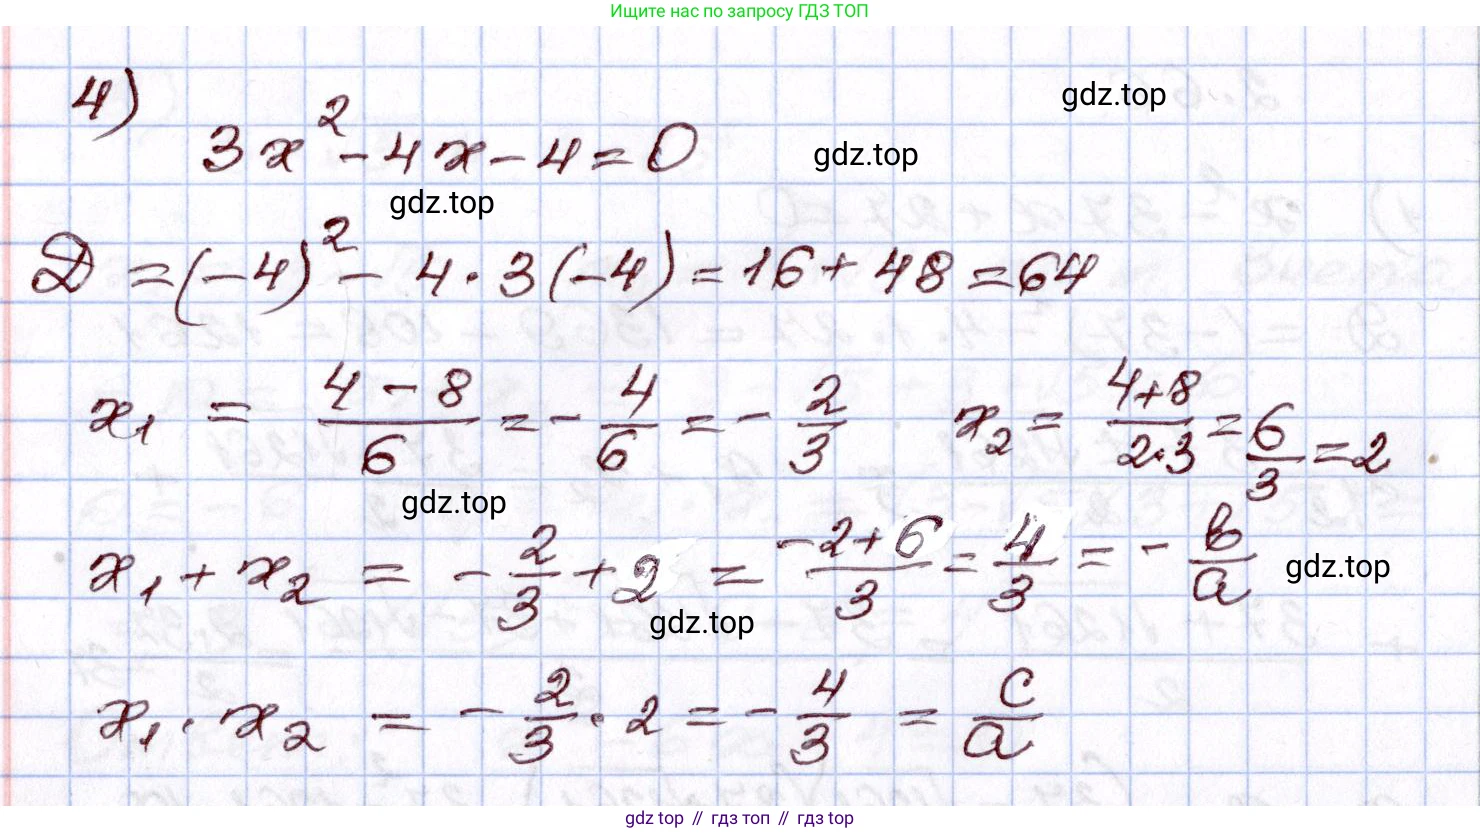 Ищите нас по запросу ГДЗ ТОП
4)
gdz.top
3x² - 4x - 4 = 0
gdz.top
gdz.top
Д = (-4)² - 4 · 3(-4) = 16 + 48 = 64
x₁ = (4 - 8)/6 = -4/6 = -2/3 x₂ = (4+8)/(2·3) = 6/3 = 2
gdz.top
x₁ + x₂ = -2/3 + 2 = (-2+6)/3 = 4/3 = -b/a
gdz.top
gdz.top
x₁ · x₂ = -2/3 · 2 = -4/3 = c/a
gdz top // гдз топ // гдз top